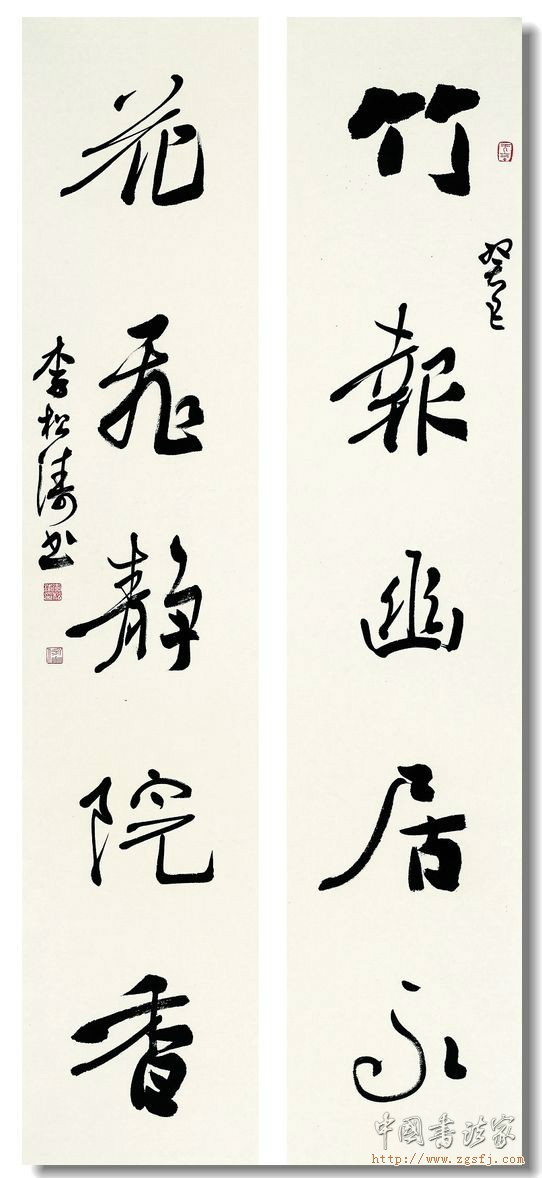 竹報幽居永
癸巳
花飛静院香
李松涛书
中國書法家
http://www.zgsfj.com